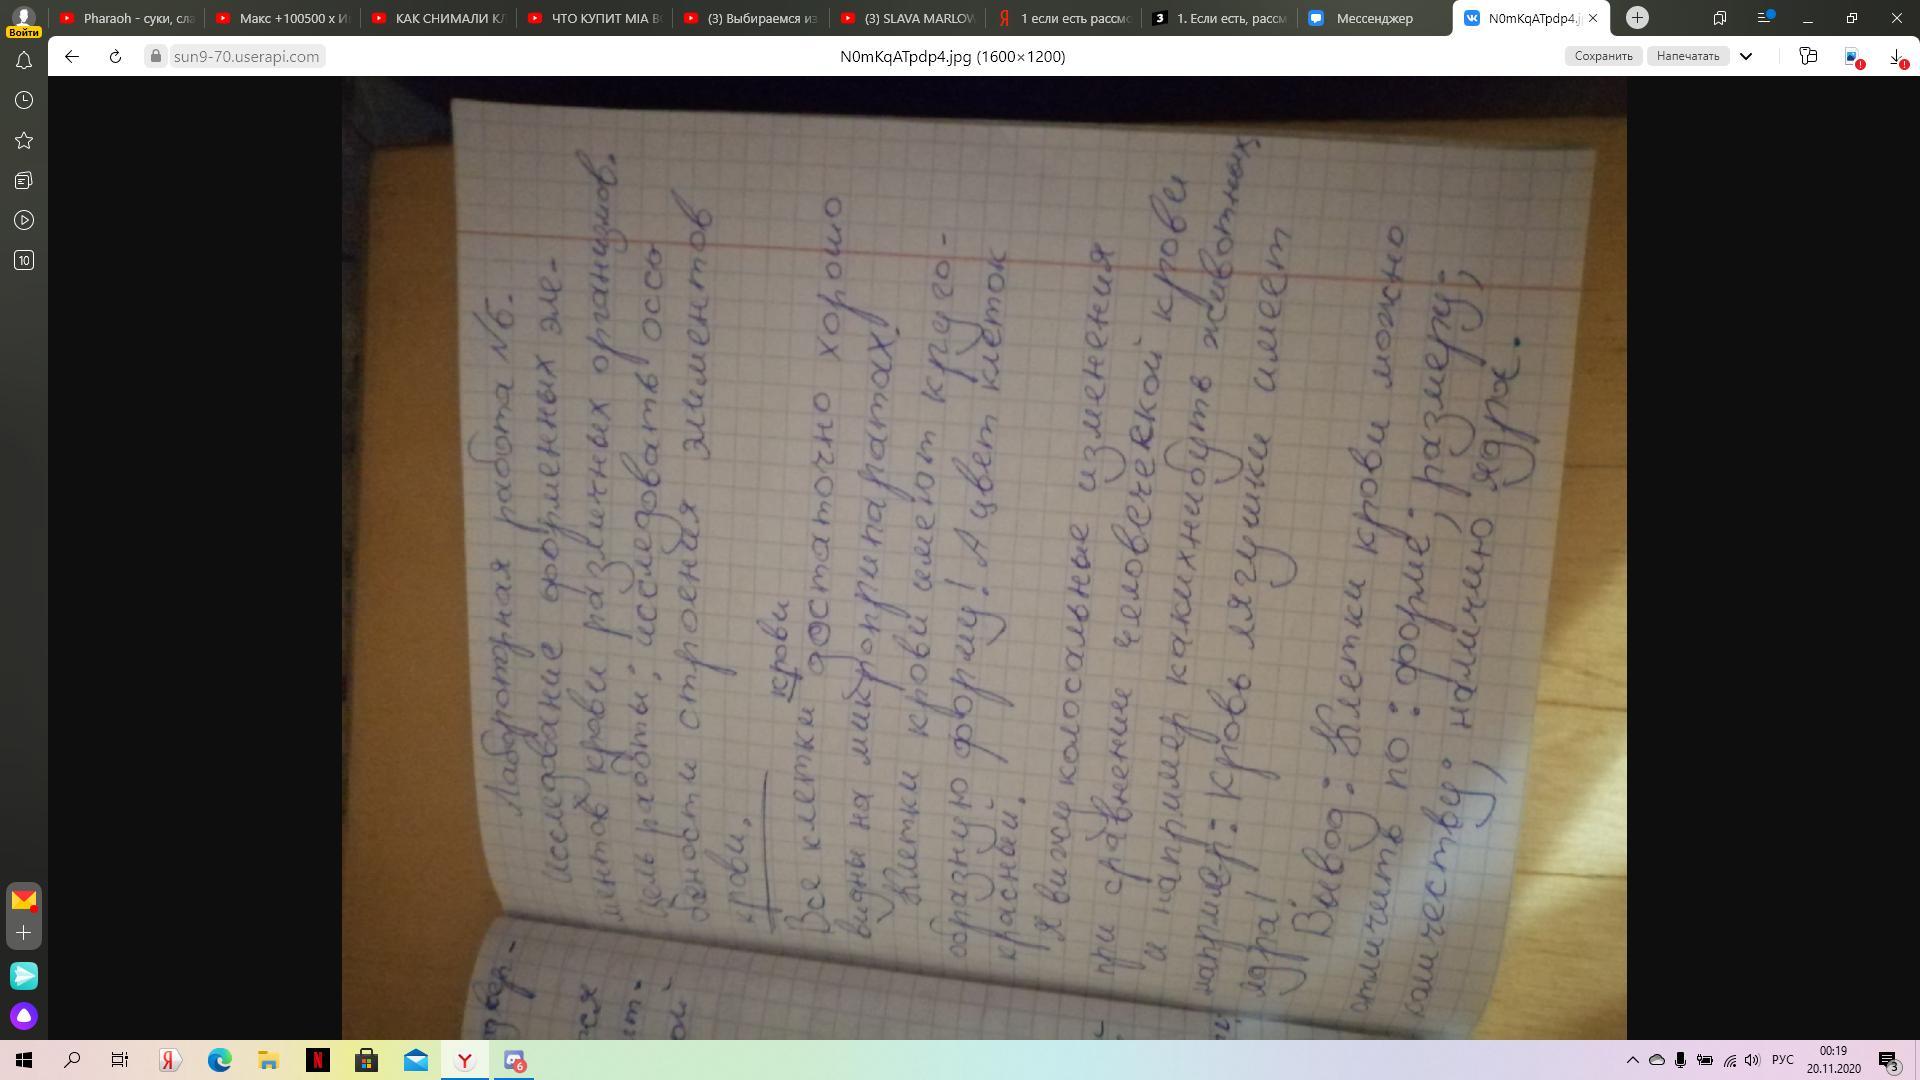 Pharaoh - суки, сла
Макс +100500 x И
КАК СНИМАЛИ КЛ
ЧТО КУПИТ MIA B
(3) Выбираемся из
(3) SLAVA MARLOW
1 если есть рассмо
1. Если есть, рассм
Мессенджер
N0mKqATpdp4.j
Войти
sun9-70.userapi.com
N0mKqATpdp4.jpg (1600×1200)
Сохранить
Напечатать
10
Лабороторная работа №5.
Исследование форменных эле-
ментов крови различных организмов.
Цель работы: исследовать осо
бенности строения элиментов
крови.
крови
Все клетки достаточно хорошо
видны на микропрИпаратах.
Клетки крови имеют круго-
образную форму! А цвет клеток
красный.
Я вижу колосальные изменения
при сравнение человеческой крови
и например какихнибуть животных,
например: кровь лягушки имеет
ядра!
Вывод: Клетки крови можно
отличить по: форме; размеру;
количеству; наличию ядра.
РУС
00:19
20.11.2020
6
3